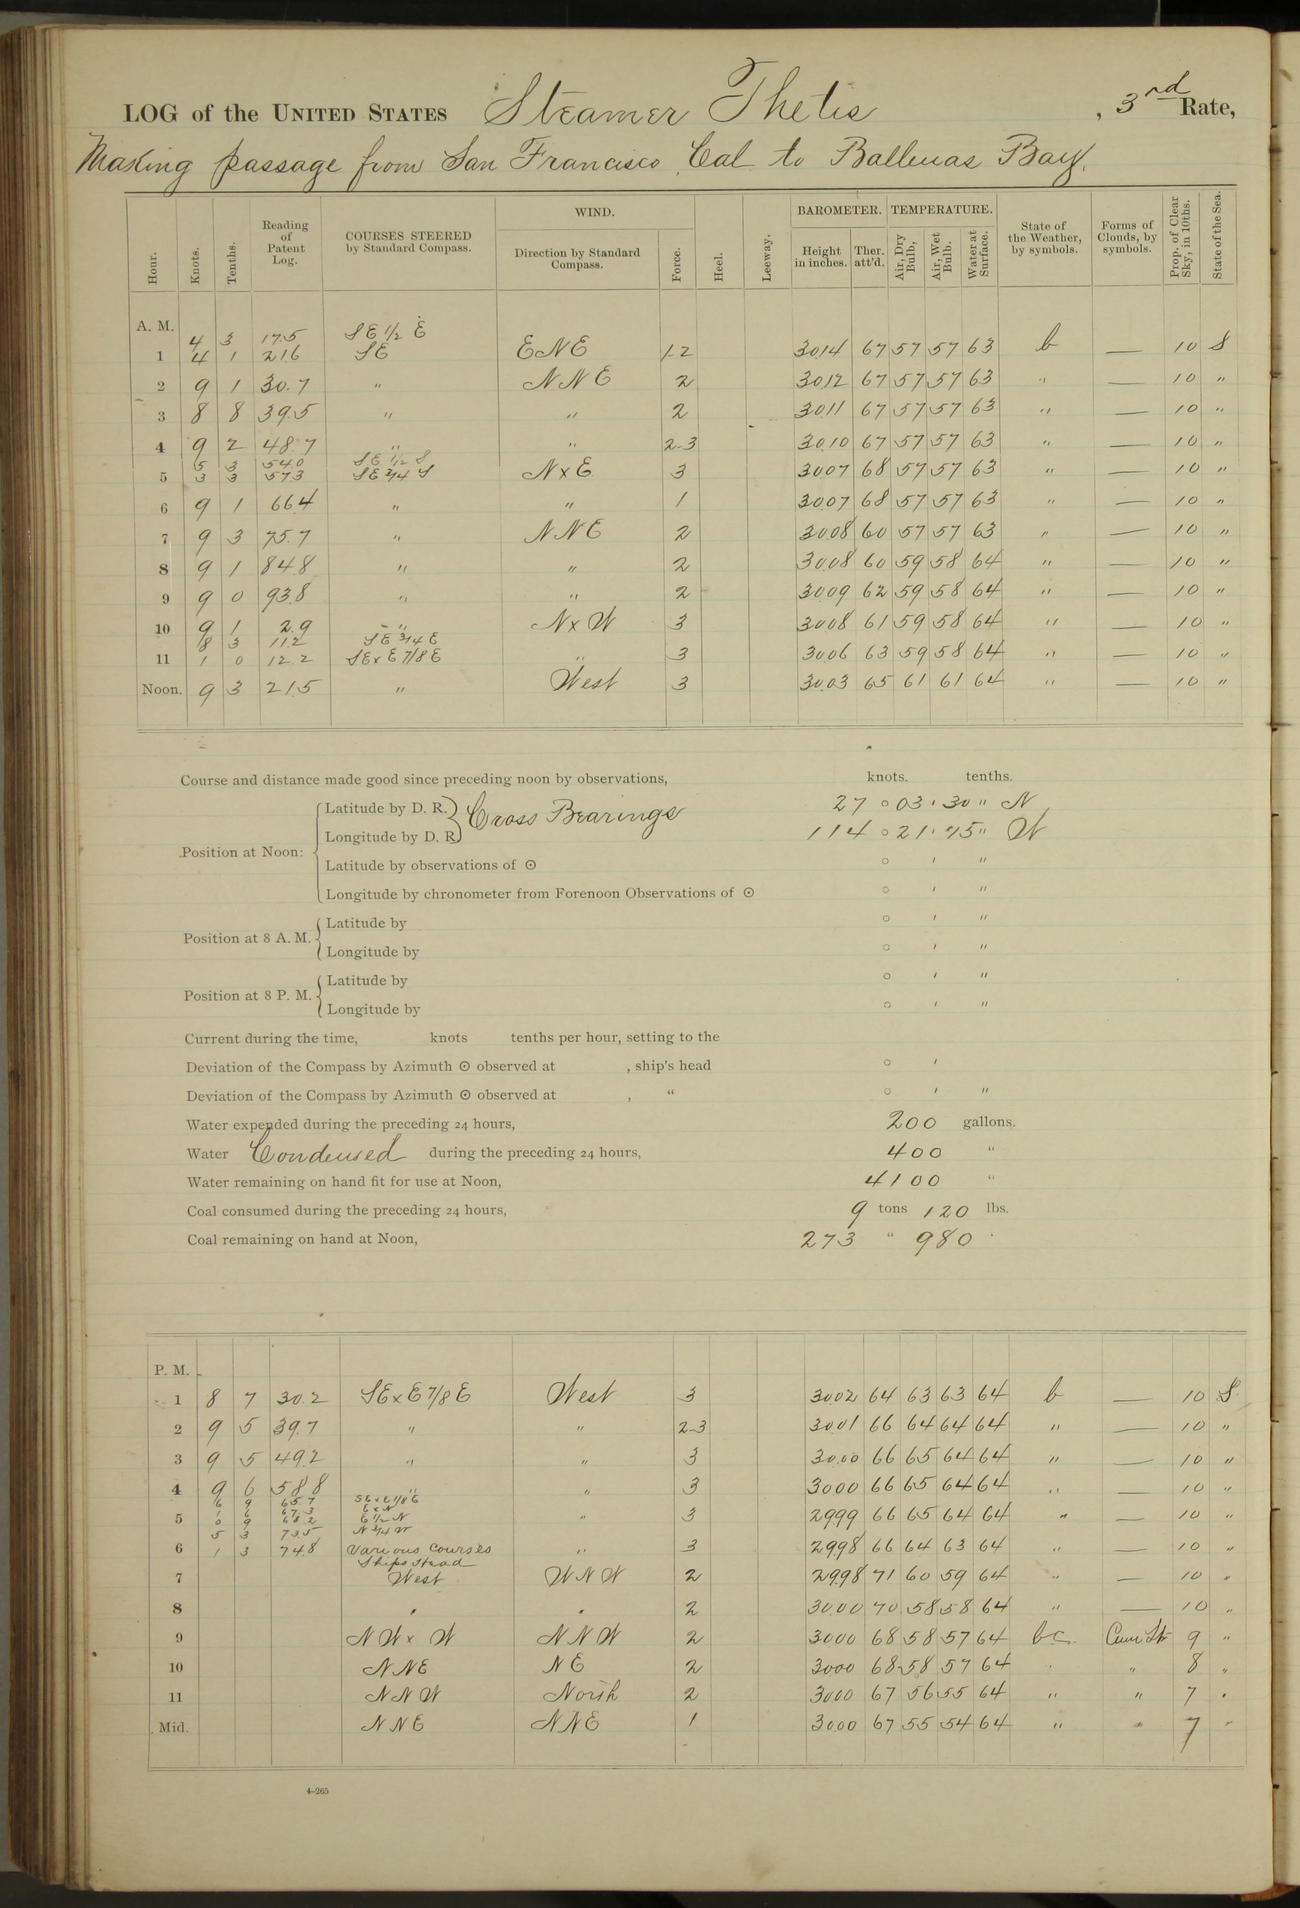 LOG of the UNITED STATES Steamer Thetis, 3rd Rate,
Making passage from San Francisco, Cal to Ballenas Bay.
Hour. Knots. Tenths. Reading of Patent Log. COURSES STEERED by Standard Compass. WIND. Direction by Standard Compass. Force. Heel. Leeway. BAROMETER. Height in inches. Ther. att'd. TEMPERATURE. Air, Dry Bulb, Air, Wet Bulb. Water at Surface. State of the Weather, by symbols. Forms of Clouds, by symbols. Prop. of Clear Sky, in 10ths. State of the Sea.
A. M.
4 3 17.5 SE 1/2 E
1 4 1 21.6 SE ENE 1-2 30.14 67 57 57 63 b — 10 S
2 9 1 30.7 " NNE 2 30.12 67 57 57 63 " — 10 "
3 8 8 39.5 " " 2 30.11 67 57 57 63 " — 10 "
4 9 2 48.7 " " 2-3 30.10 67 57 57 63 " — 10 "
5 3 54.0 SE 1/2 S
5 3 3 57.3 SE 3/4 S NxE 3 30.07 68 57 57 63 " — 10 "
6 9 1 66.4 " " 1 30.07 68 57 57 63 " — 10 "
7 9 3 75.7 " NNE 2 30.08 60 57 57 63 " — 10 "
8 9 1 84.8 " " 2 30.08 60 59 58 64 " — 10 "
9 9 0 93.8 " " 2 30.09 62 59 58 64 " — 10 "
10 9 1 2.9 " NxW 3 30.08 61 59 58 64 " — 10 "
8 3 11.2 SE 3/4 E
11 1 0 12.2 SExE 7/8 E " 3 30.06 63 59 58 64 " — 10 "
Noon. 9 3 21.5 " West 3 30.03 65 61 61 64 " — 10 "
Course and distance made good since preceding noon by observations, knots. tenths.
Position at Noon:
Latitude by D. R. } Cross Bearings 27 ° 03 ' 30 " N
Longitude by D. R. 114 ° 21 ' 45 " W
Latitude by observations of ☉ ° ' "
Longitude by chronometer from Forenoon Observations of ☉ ° ' "
Position at 8 A. M. { Latitude by ° ' "
Longitude by ° ' "
Position at 8 P. M. { Latitude by ° ' "
Longitude by ° ' "
Current during the time, knots tenths per hour, setting to the
Deviation of the Compass by Azimuth ☉ observed at , ship's head ° '
Deviation of the Compass by Azimuth ☉ observed at , " ° ' "
Water expended during the preceding 24 hours, 200 gallons.
Water Condensed during the preceding 24 hours, 400 "
Water remaining on hand fit for use at Noon, 4100 "
Coal consumed during the preceding 24 hours, 9 tons 120 lbs.
Coal remaining on hand at Noon, 273 " 980 "
P. M.
1 8 7 30.2 SExE 7/8 E West 3 30.02 64 63 63 64 b — 10 S
2 9 5 39.7 " " 2-3 30.01 66 64 64 64 " — 10 "
3 9 5 49.2 " " 3 30.00 66 65 64 64 " — 10 "
4 9 6 58.8 " " 3 30.00 66 65 64 64 " — 10 "
6 9 65.7 SExE 1/8 E
1 6 67.3 ExN
5 0 9 68.2 E 1/2 N " 3 29.99 66 65 64 64 " — 10 "
5 3 73.5 N 3/4 W
6 1 3 74.8 Various Courses " 3 29.98 66 64 63 64 " — 10 "
Ships Head
7 West WNW 2 29.98 71 60 59 64 " — 10 "
8 " " 2 30.00 70 58 58 64 " — 10 "
9 NWxW NNW 2 30.00 68 58 57 64 bc. Cum St 9 "
10 NNE NE 2 30.00 68 58 57 64 " " 8 "
11 NNW North 2 30.00 67 56 55 64 " " 7 "
Mid. NNE NNE 1 30.00 67 55 54 64 " " 7 "
4-265